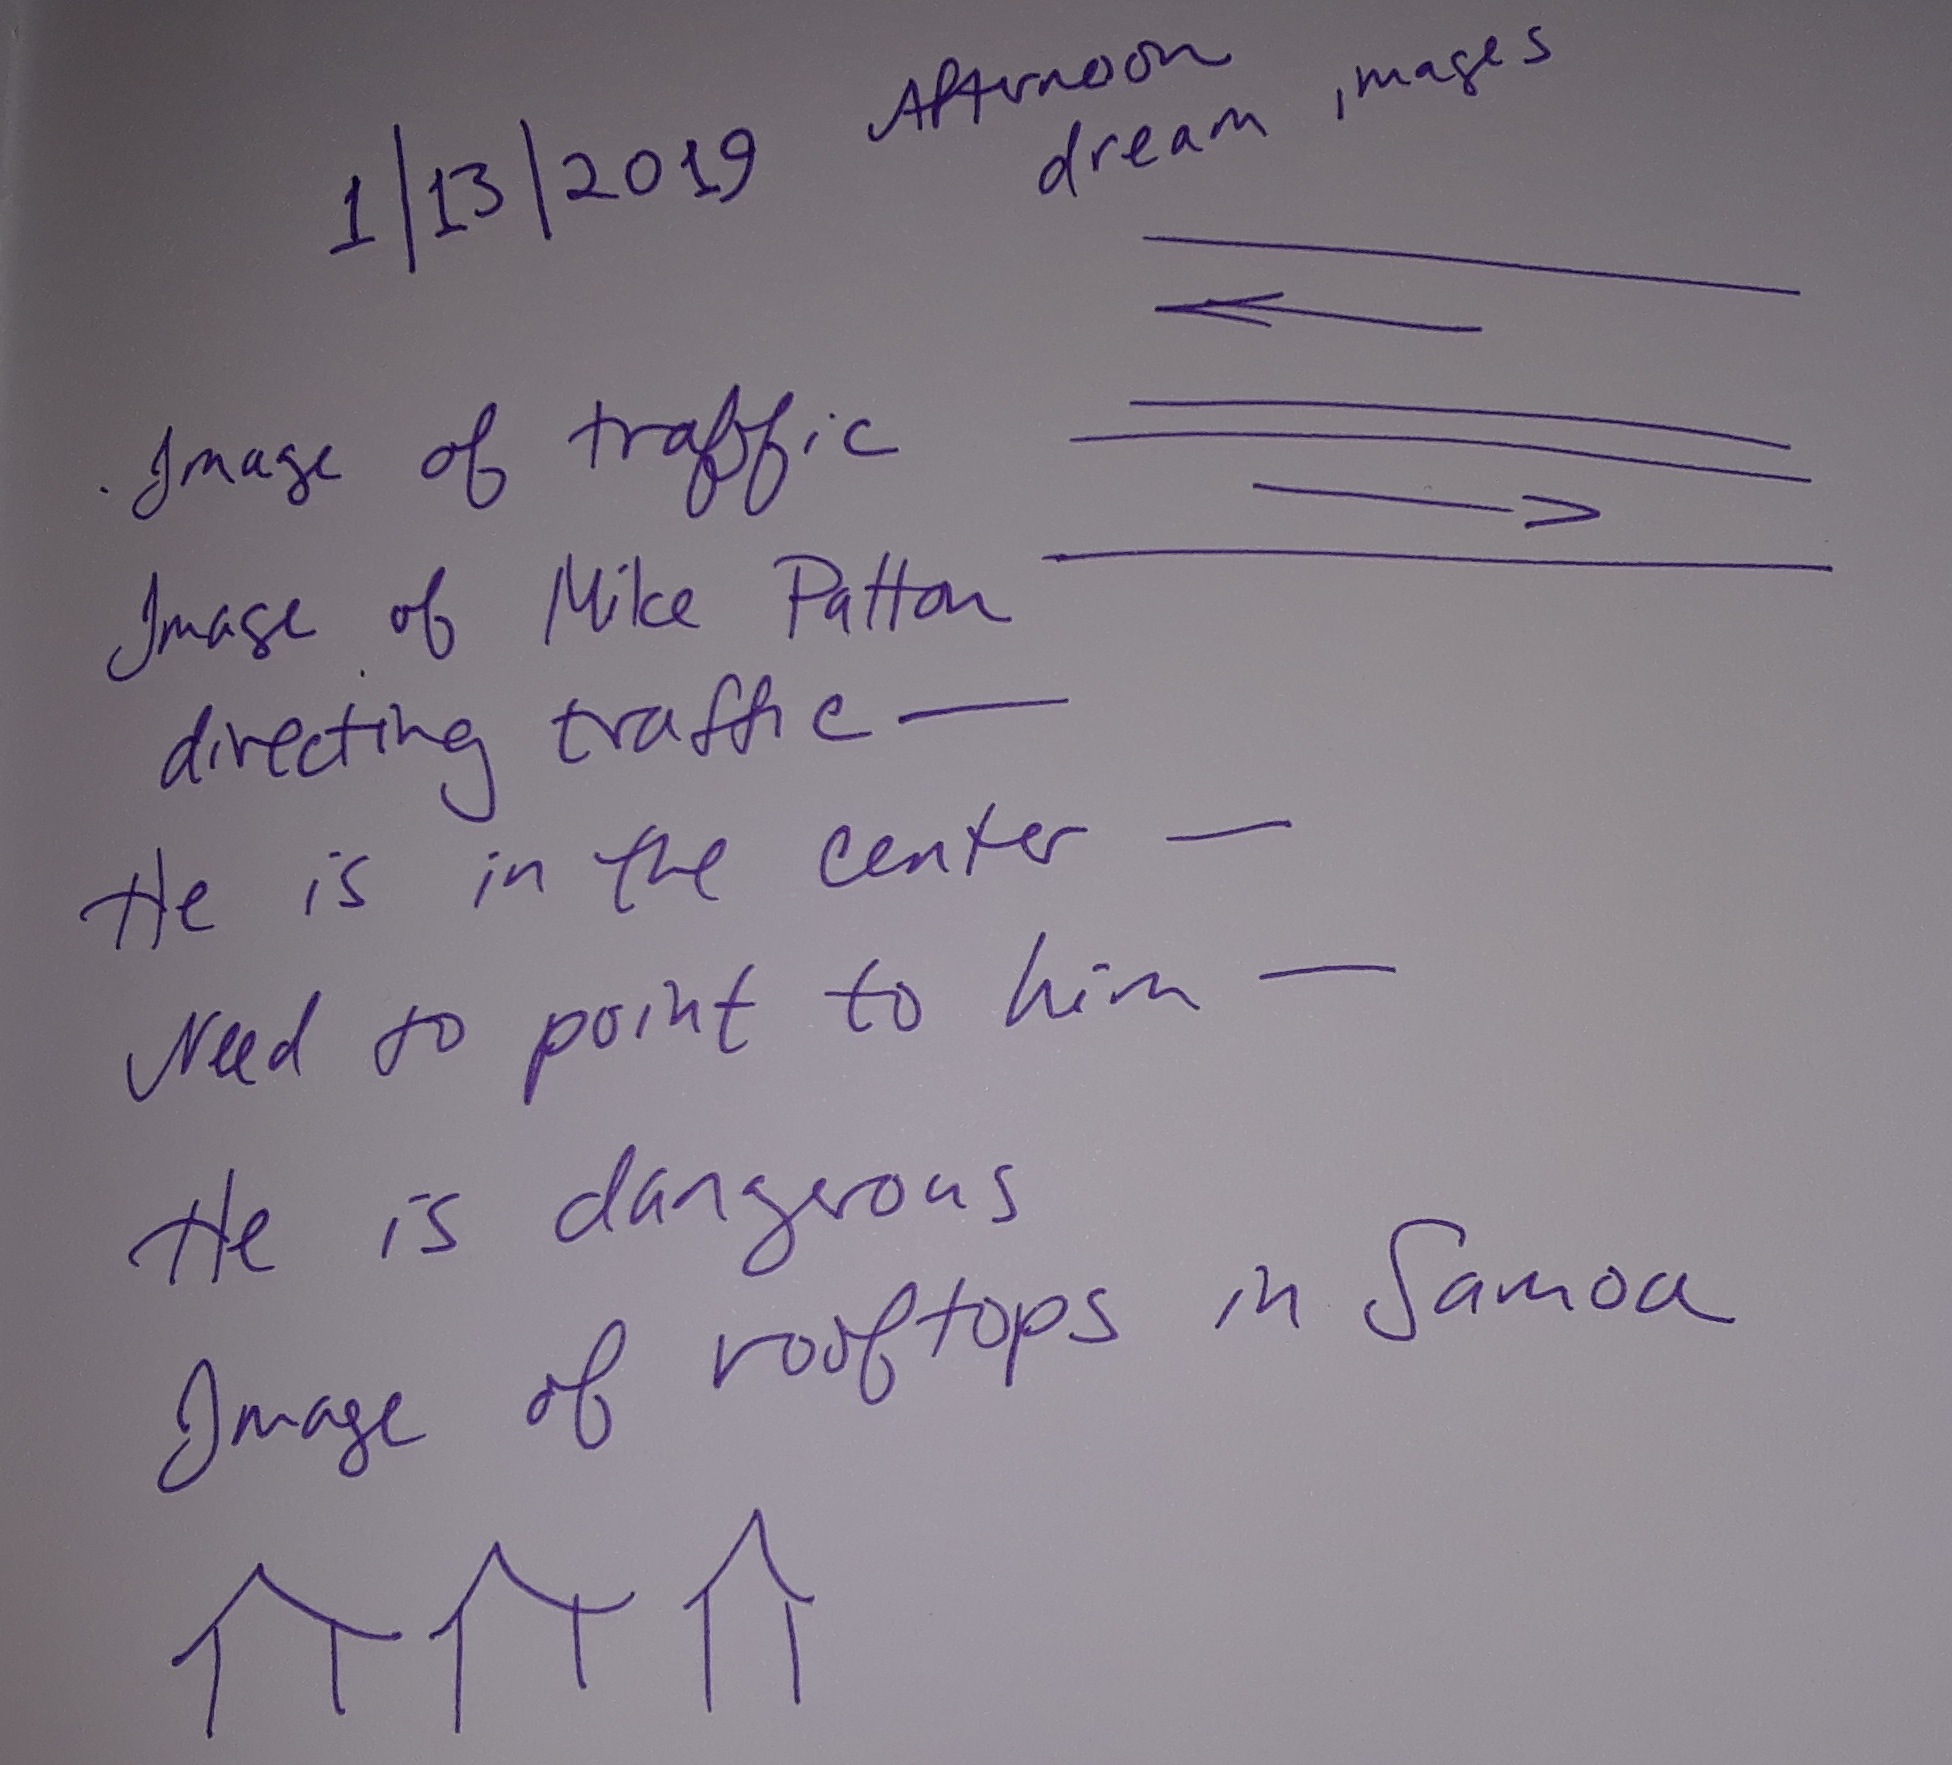 1/13/2019 Afternoon
dream images
Image of traffic
Image of Mike Patton
directing traffic —
He is in the center —
Need to point to him —
He is dangerous
Image of rooftops in Samoa